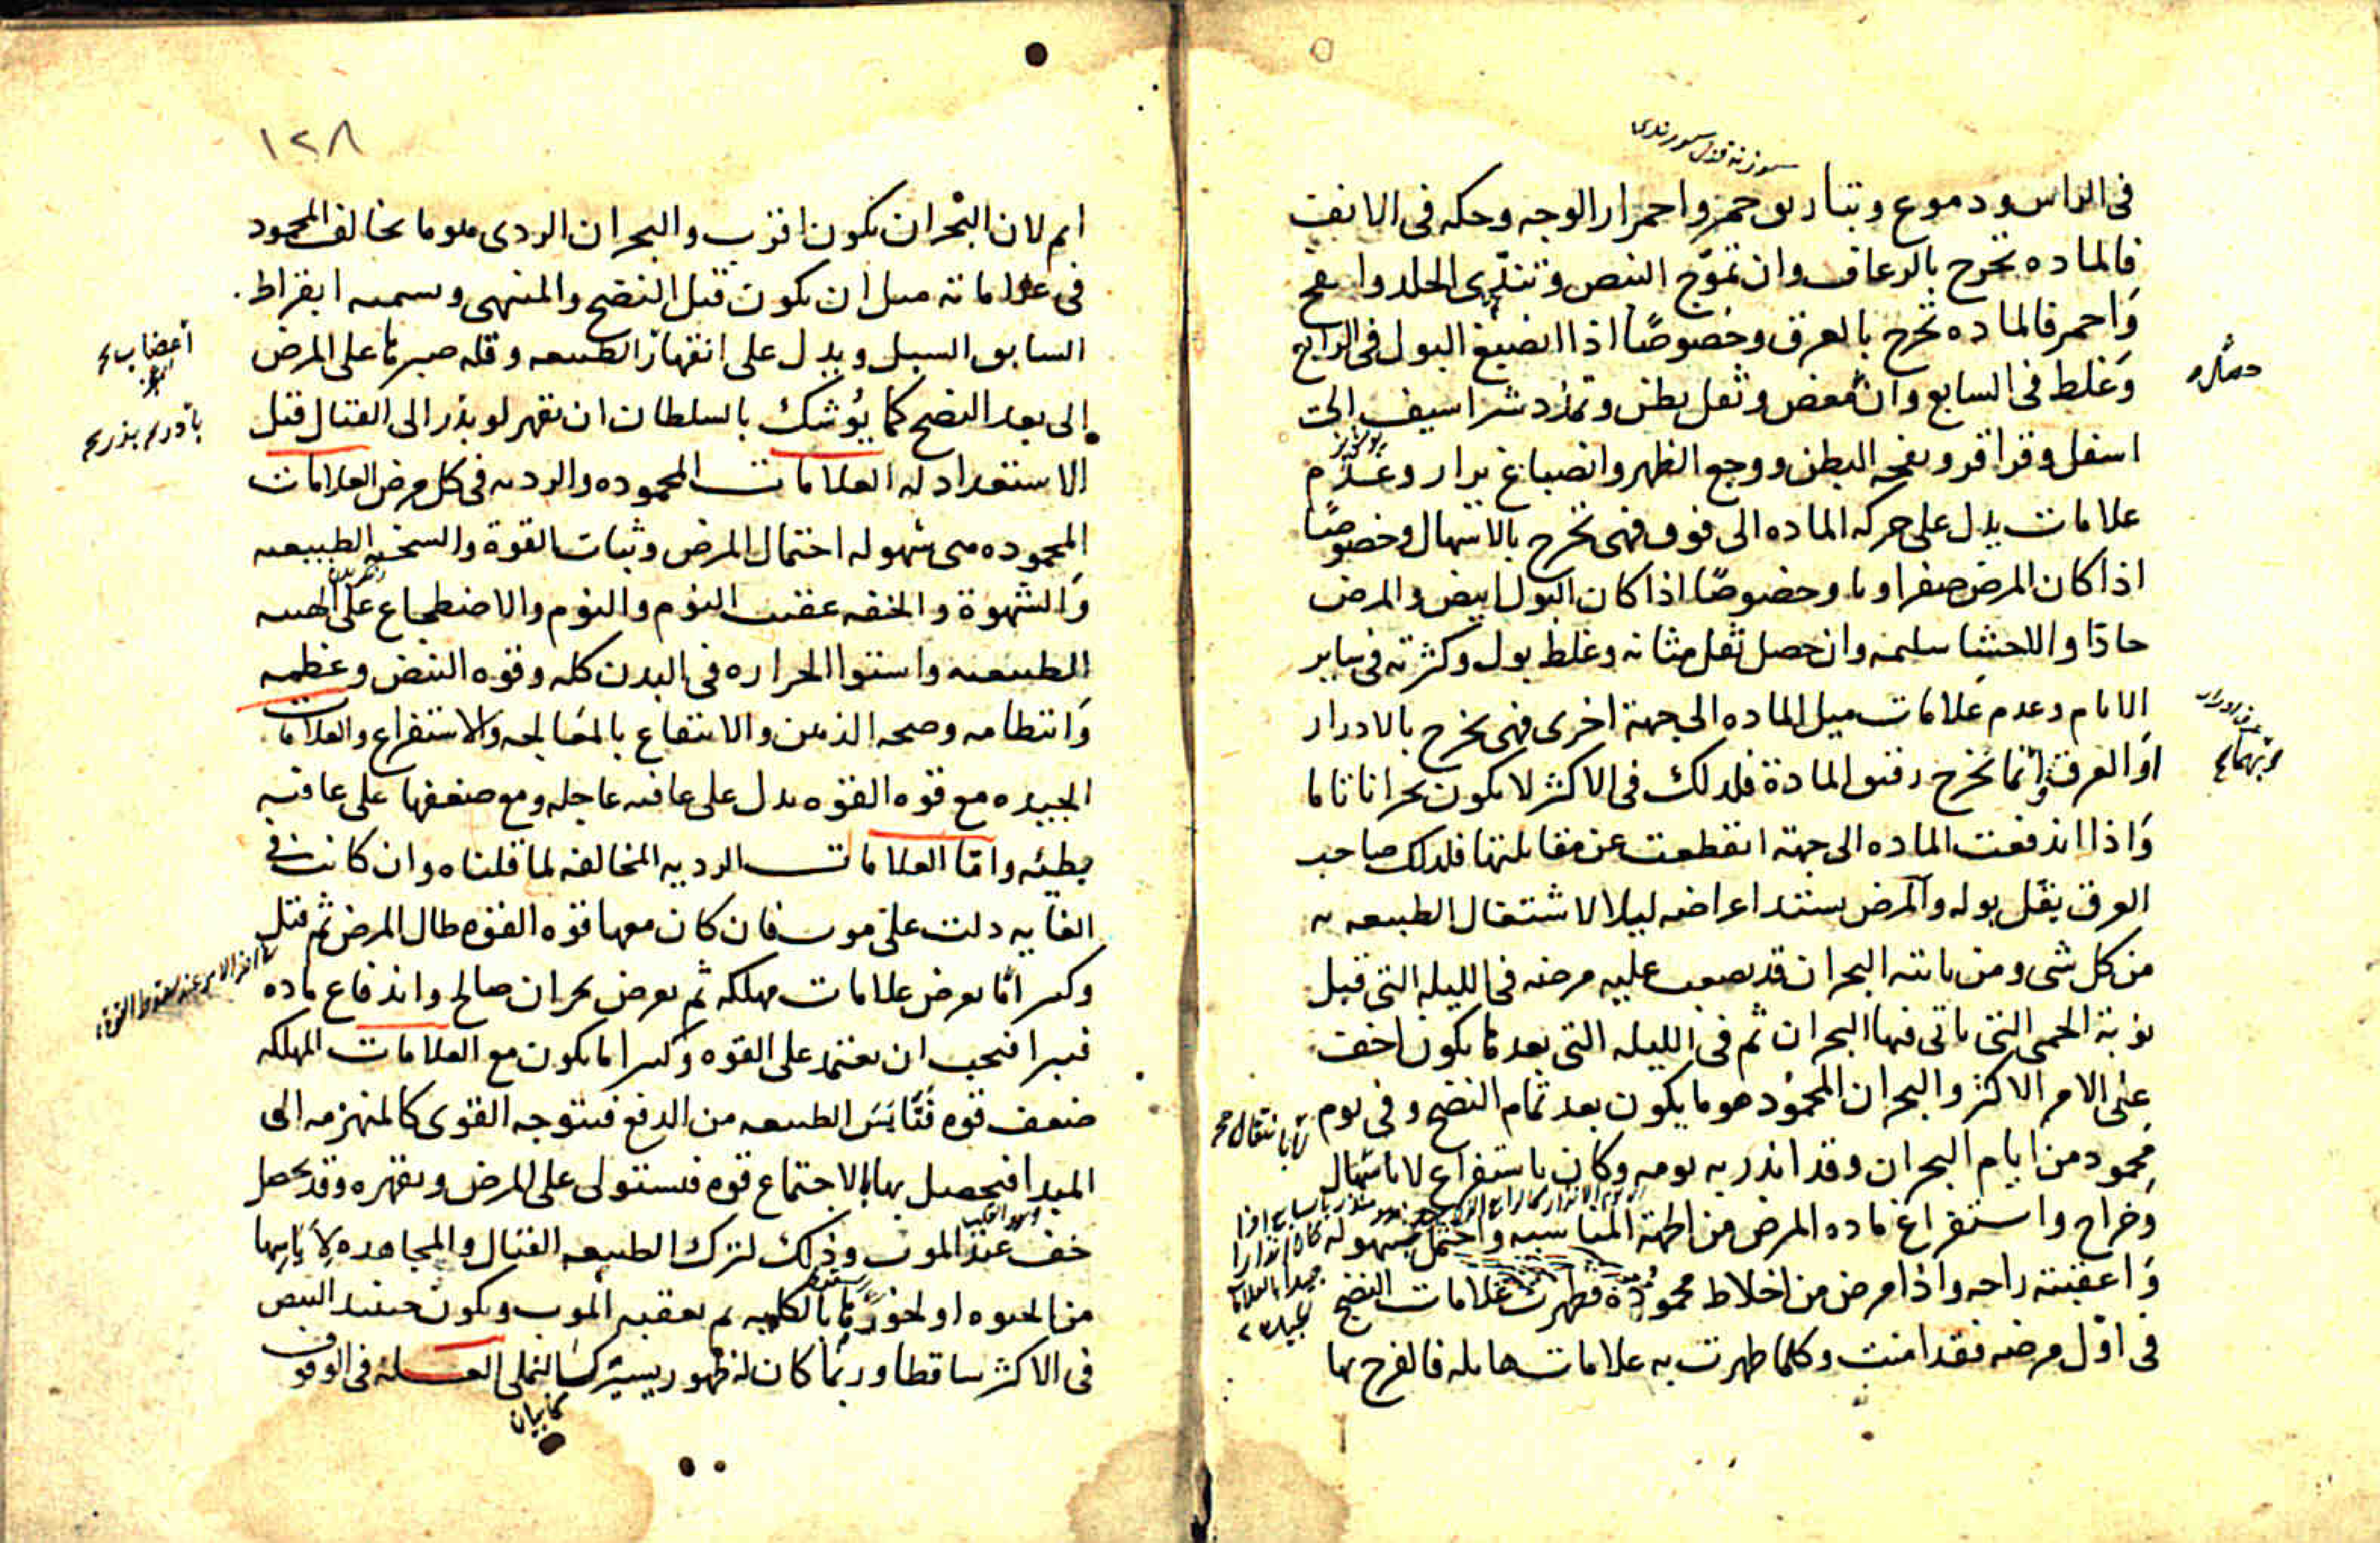 في الراس ودموع وتباريق حمر واحمرار الوجه وحكه في الانف
فالماده تخرج بالرعاف وان تموّج النبض وتندّى الجلد وانتفخ
واحمر فالماده تخرج بالعرق وخصوصًا اذا انصبغ البول في الرابع
وغلظ في السابع وان مغص وثقل بطن وتمدد شراسيف الى
اسفل وقراقر ونفخه البطن ووجع الظهر وانصباغ براز وعدم
علامات يدل على حركه الماده الى فوق فهى تخرج بالاسهال وخصوصًا
اذا كان المرض صفراويا وخصوصًا اذا كان البول ابيض والمرض
حادّا والاحشا سليمه وان حصل ثقل مثانه وغلظ بول وكثرته في ساير
الايام وعدم علامات ميل الماده الى جهة اخرى فهى تخرج بالادرار
او العرق وانما تخرج رقيق المادة فلدلك في الاكثر لا يكون بحرانا تاما
واذا اندفعت الماده الى جهة انقطعت عن مقابلتها فلدلك صاحب
العرق يقل بوله والمرض يشتد اعراضه ليلا لاشتغال الطبيعه به
من كل شى ومن ياتيه البحران قد يصعب عليه مرضه في الليله التى قبل
نوبة الحمى التى ياتى فيها البحران ثم في الليله التى بعدها يكون اخف
على الامر الاكثر والبحران المحمود هو ما يكون بعد تمام النضج وفي يوم
محمود من ايام البحران وقد انذر به يومه وكان باستفراغ لا بانتقال
وخراج واستفراغ ماده المرض من الجهة المناسبه واحتمل بسهوله
واعقبته راحه واذا مرض من اخلاط محمودة فظهرت علامات النضج
في اوّل مرضه فقد امنت وكلما ظهرت به علامات هايله فالفرح بها
١٢٨
اتم لان البحران يكون اقرب والبحران الردى هو ما يخالف المحمود
في علاماته مثل ان يكون قبل النضج والمنتهى ويسميه ابقراط
السابق السيل ويدل على انتهاز الطبيعه وقله صبرها على المرض
الى بعد النضج كما يُوشك بالسلطان ان يقهر لو بدر الى القتال قبل
الاستعداد له العلامات المحموده والرديه في كل مرض العلامات
المحموده هى سهوله احتمال المرض وثبات القوة والسحنه الطبيعيه
والشهوة والخفه عقيب النوم والنوم والاضطجاع على الهيئه
الطبيعيه واستوا الحراره في البدن كله وقوه النبض وعظمه
وانتظامه وصحه الذهن والانتفاع بالمعالجه والاستفراغ والعلامات
الجيده مع قوه القوه يدل على عافيه عاجله ومع ضعفها على عافيه
بطيئه واما العلامات الرديه المخالفه لما قلناه وان كانت في
الغايه دلت على موت فان كان معها قوه القوه طال المرض ثم قتل
وكثيرا ما يعرض علامات مهلكه ثم يعرض بحران صالح واندفاع ماده
فيبرا فيجب ان يعتمد على القوه وكثيرا ما يكون مع العلامات المهلكه
ضعف قوه فتايس الطبيعه من الدفع فيتوجه القوى كالمنهزمه الى
المبدا فيحصل بها بالاجتماع قوه فيستولى على المرض ويقهره وقد يحصل
خف عند الموت وذلك لترك الطبيعه القتال والمجاهده لاياسها
من الحيوه او لخورها بالكليه ثم يعقبه الموت ويكون حينئذ النبض
في الاكثر ساقطا وربما كان له ظهور يسير